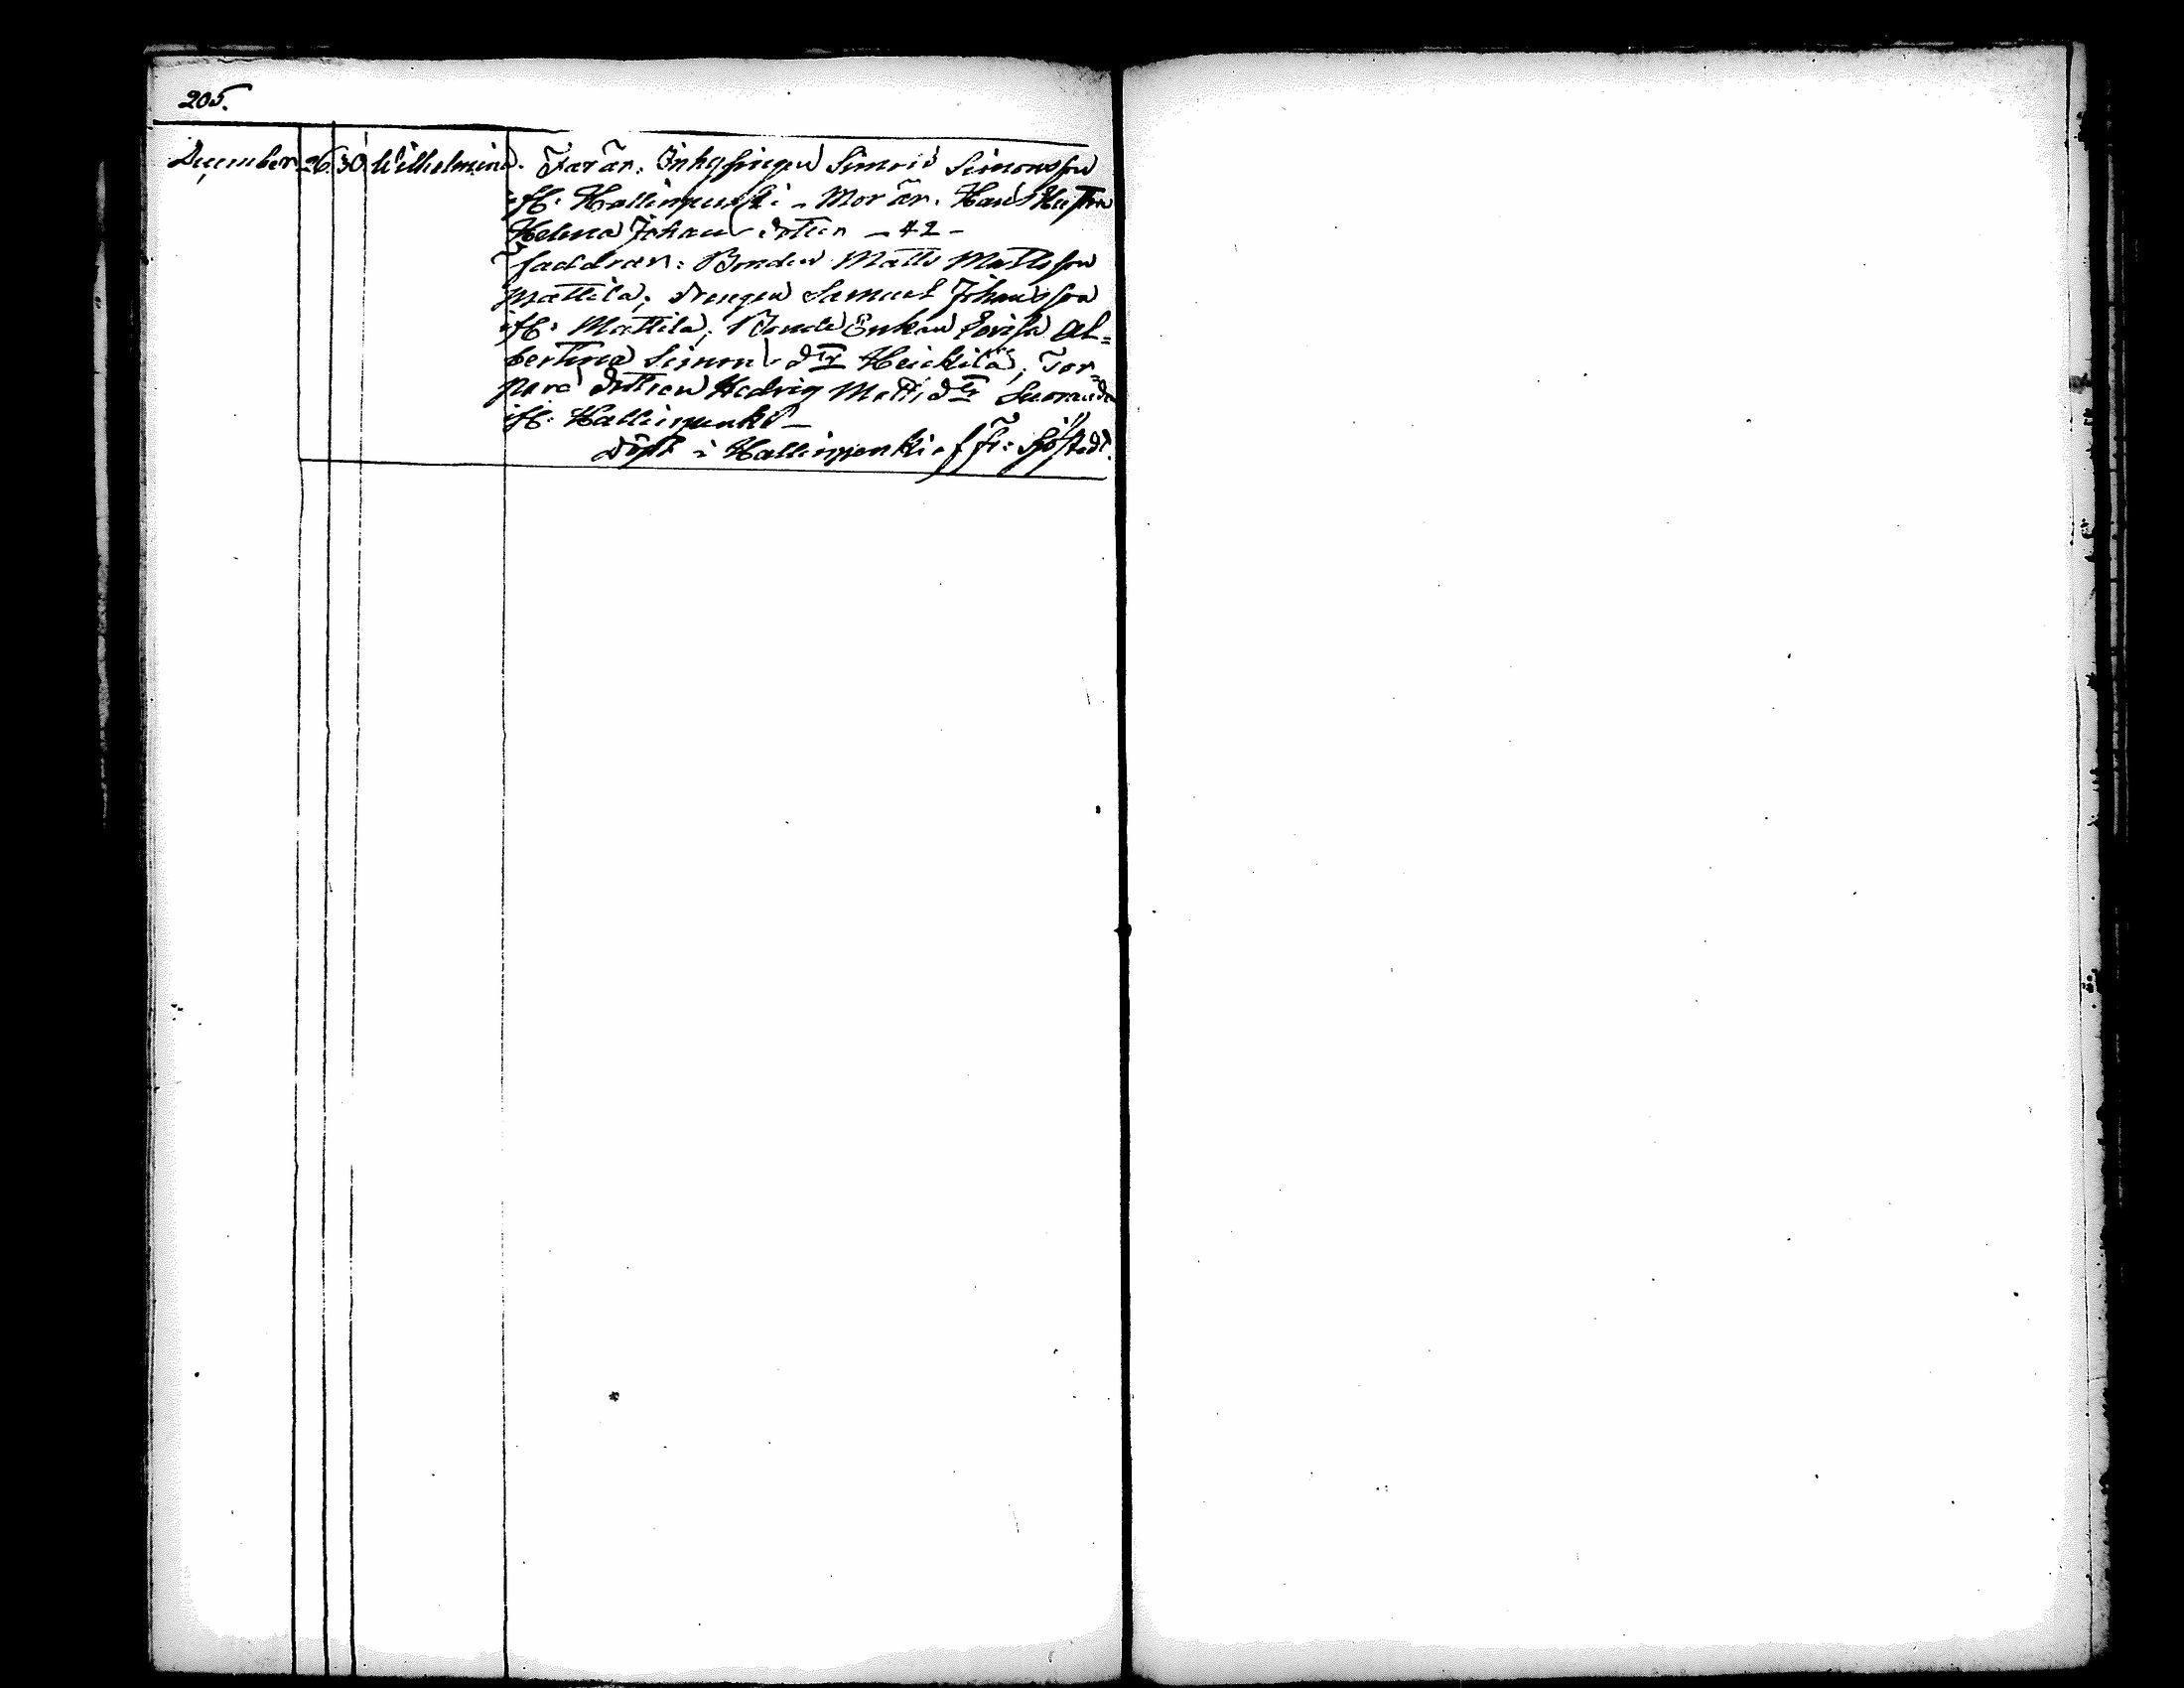 205.
December 26. 30 Wilhelmina. Far är. Inhysingen Simon Simonsson
fr. Hallinpenki - Mor är. Hans Hustru
Helena Johans dotter - 42 -
Faddrar: Bonden Matts Mattsson
Mattila; Drengen Samuel Johansson
fr. Mattila; Bonde Enkan Lovisa Al=
bertina Simons dr Heickilä; Tor=
pare dottren Hedvig Matts dr
fr. Hallinpenki -
Döpt i Hallinpenki af Fr: Sjöstedt.